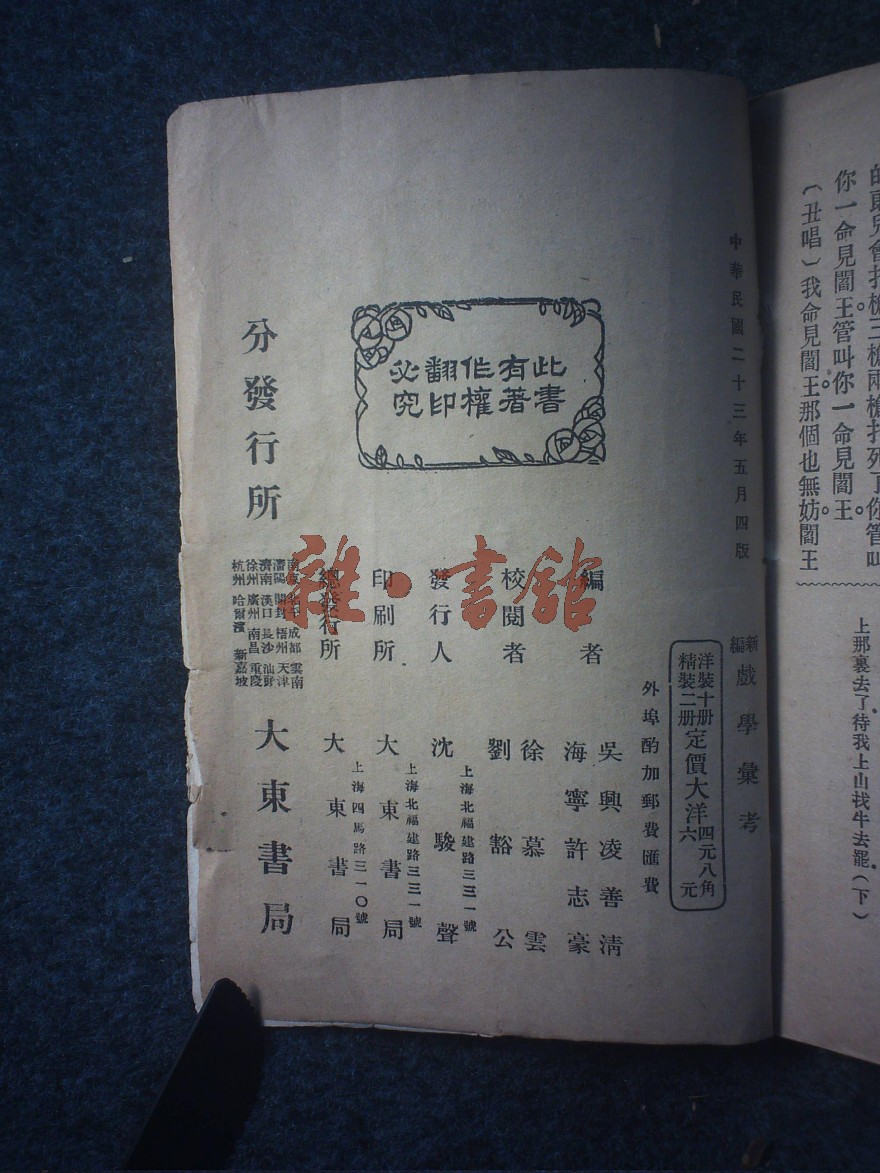 你一命見閻王。管叫你一命見閻王。
（丑唱）我命見閻王。那個也無妨。閻王
上那裏去了待我上山找牛去罷（下）
中華民國二十三年五月四版
新編戲學彙考
洋裝十册
精裝二册
定價大洋
四元八角
六元
外埠酌加郵費匯費
此書
有著
作權
翻印
必究
編者
吳興凌善清
海寧許志豪
校閱者
徐慕雲
劉豁公
發行人
沈駿聲
上海北福建路三三一號
印刷所
大東書局
上海北福建路三三一號
總發行所
大東書局
上海四馬路三一〇號
分發行所
南京 北平 成都 雲南
瀋陽 開封 梧州 天津
濟南 漢口 長沙 汕頭
徐州 廣州 南昌 重慶
杭州 哈爾濱 新嘉坡
大東書局
雜·書舘